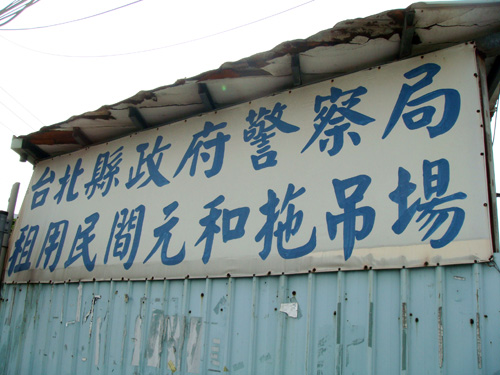 台北縣政府警察局
租用民間元和拖吊場